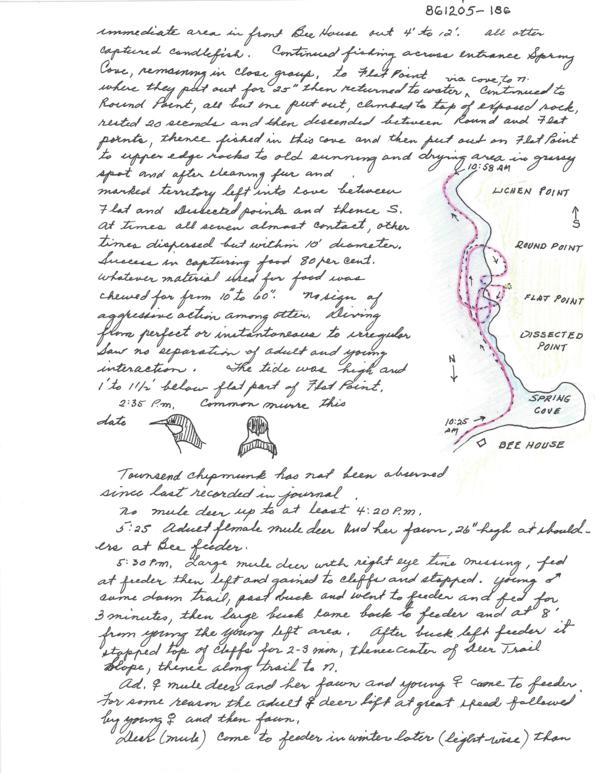 861205-186
immediate area in front Bee House out 4' to 12'. all otter
captured candlefish. Continued fishing across entrance Spring
Cove, remaining in close group, to Flat Point via cove to n.
where they put out for 25" then returned to water, Continued to
Round Point, all but one put out, climbed to top of exposed rock,
rested 20 seconds and then descended between Round and Flat
points, thence fished in this cove and then put out on Flat Point
to upper edge rocks to old sunning and drying area in grassy
spot and after cleaning fur and
marked territory left into cove between
Flat and Dissected points and thence S.
At times all seven almost contact, other
times dispersed but within 10' diameter.
Success in capturing food 80 per cent.
Whatever material used for food was
chewed for from 10" to 60". no sign of
aggressive action among otter. Diving
from perfect or instantaneous to irregular
Saw no separation of adult and young
interaction. The tide was high and
1' to 1 1/2' below flat part of Flat Point.
2:35 P.m. Common murre this
date
10:58 AM
LICHEN POINT
S
ROUND POINT
FLAT POINT
DISSECTED
POINT
N
SPRING
COVE
10:25
AM
BEE HOUSE
Townsend chipmunk has not been observed
since last recorded in journal.
no mule deer up to at least 4:20 P.m.
5:25 Adult female mule deer and her fawn, 26" high at should-
ers at Bee feeder.
5:30 P.m. Large mule deer with right eye tine missing, fed
at feeder then left and gained to cliffs and stopped. Young ♂
came down trail, past buck and went to feeder and fed for
3 minutes, then large buck came back to feeder and at 8'
from young the young left area. After buck left feeder it
stopped top of cliffs for 2-3 min, thence center of Deer Trail
slope, thence along trail to n.
Ad. ♀ mule deer and her fawn and young ♀ come to feeder.
For some reason the adult ♀ deer left at great speed followed
by young ♀ and then fawn.
Deer (mule) come to feeder in winter later (light-wise) than